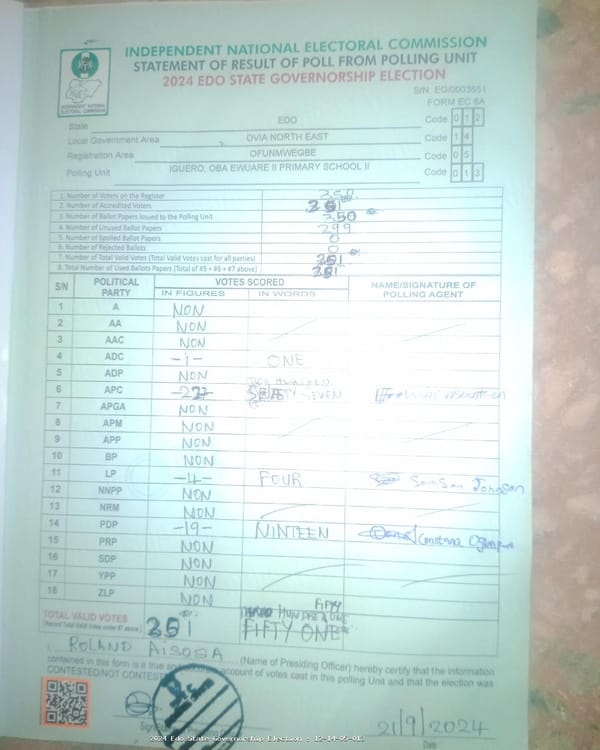 INDEPENDENT NATIONAL ELECTORAL COMMISSION
STATEMENT OF RESULT OF POLL FROM POLLING UNIT
2024 EDO STATE GOVERNORSHIP ELECTION
S/N: EG/0003651
FORM EC 8A
INDEPENDENT NATIONAL ELECTORAL COMMISSION
State EDO Code 012
Local Government Area OVIA NORTH EAST Code 14
Registration Area OFUNMWEGBE Code 05
Polling Unit IGUERO, OBA EWUARE II PRIMARY SCHOOL II Code 013
1. Number of Voters on the Register
2. Number of Accredited Voters 351
3. Number of Ballot Papers Issued to the Polling Unit 350
4. Number of Unused Ballot Papers 299
5. Number of Spoiled Ballot Papers 0
6. Number of Rejected Ballots 0
7. Number of Total Valid Votes (Total Valid Votes cast for all parties) 351
8. Total Number of Used Ballots Papers (Total of #5 + #6 + #7 above) 351
S/N POLITICAL PARTY VOTES SCORED NAME/SIGNATURE OF POLLING AGENT
IN FIGURES IN WORDS
1 A NON
2 AA NON
3 AAC NON
4 ADC -1- ONE
5 ADP NON
6 APC SEVEN
7 APGA NON
8 APM NON
9 APP NON
10 BP NON
11 LP -4- FOUR SamSon Johnson
12 NNPP NON
13 NRM NON
14 PDP -19- NINTEEN Constana
15 PRP NON
16 SDP NON
17 YPP NON
18 ZLP NON
TOTAL VALID VOTES 351 HUNDRED FIFTY ONE
I, ROLAND AISOSA (Name of Presiding Officer) hereby certify that the information
contained in this form is a true and account of votes cast in this polling Unit and that the election was
CONTESTED/NOT CONTESTED
21/9/2024
Date
2024 Edo State Governorship Election - 12-14-05-013